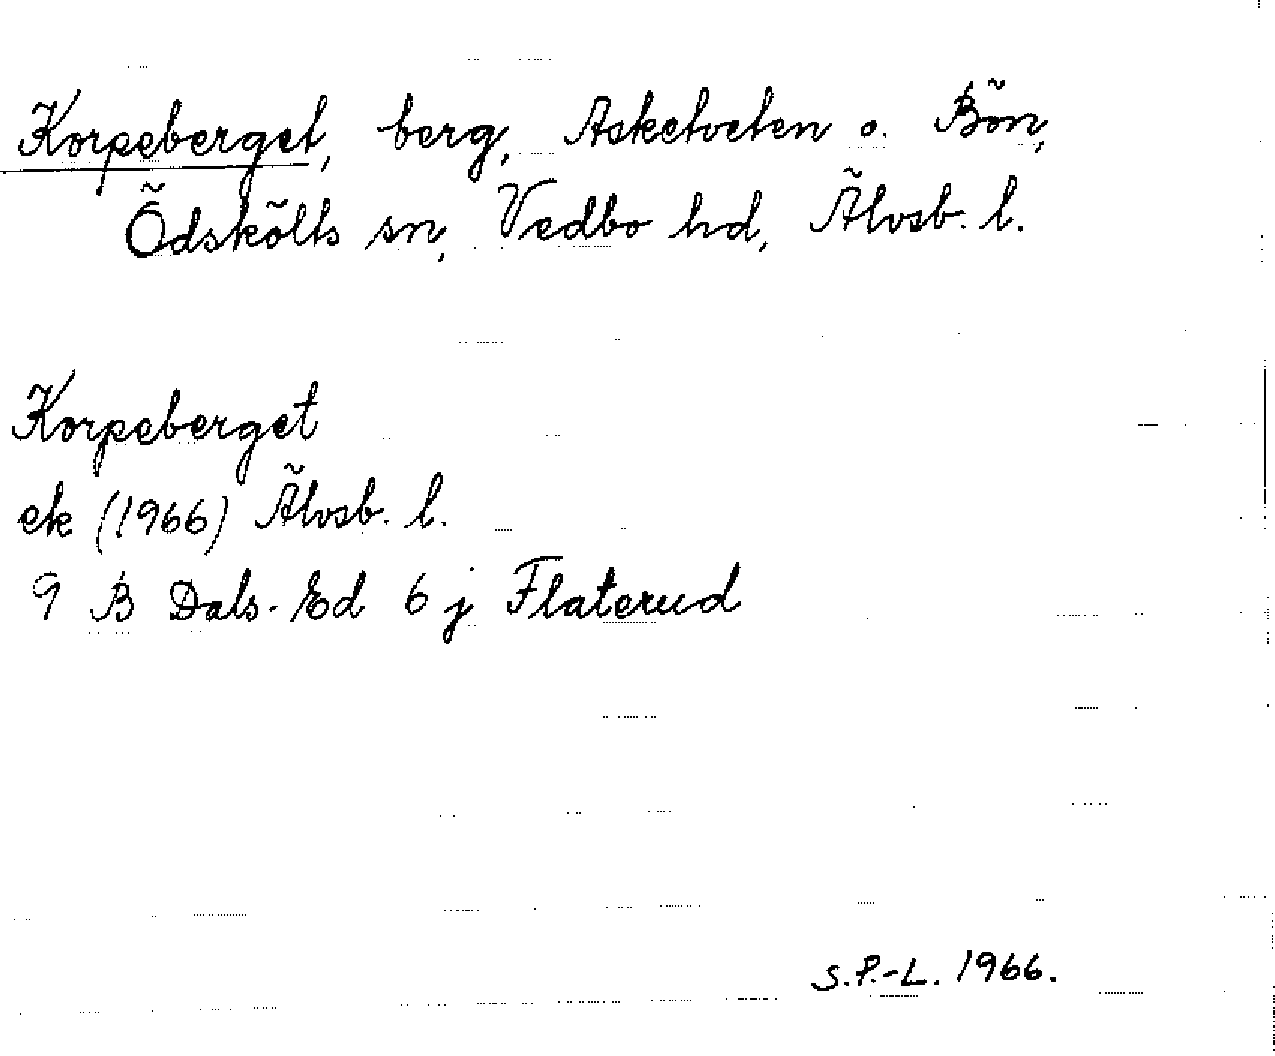 Korpeberget, berg, Asketveten o. Bön,
Ödskölts sn, Vedbo hd, Älvsb. l.
Korpeberget
ek (1966) Älvsb. l.
9 B Dals-Ed 6 j Flaterud
S.P.-L. 1966.